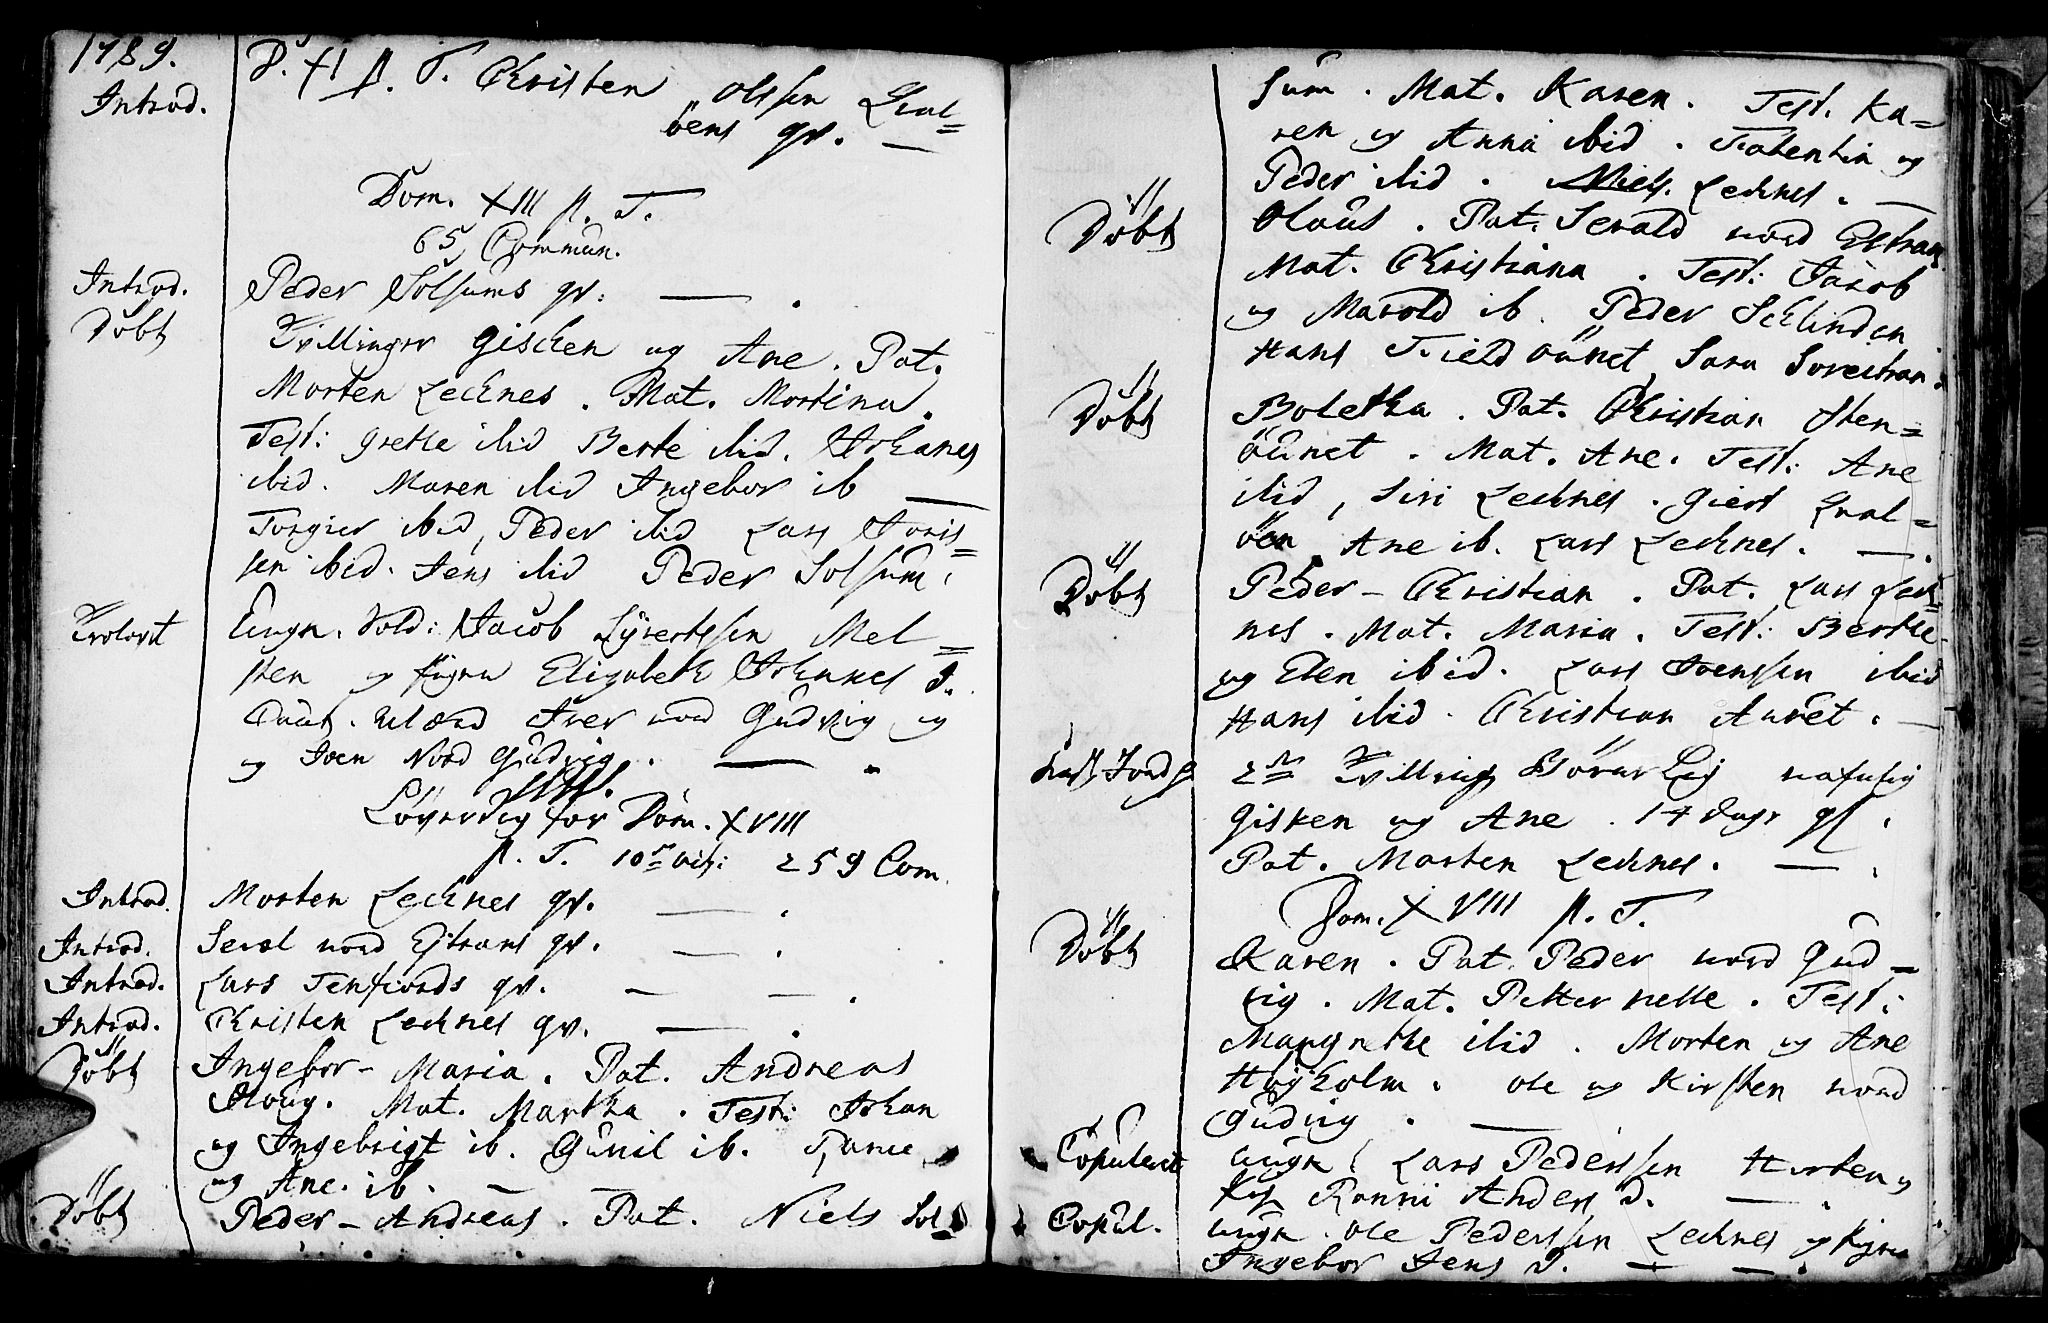 1789.
D. XI p. T. Christen Olssen Qval=
Introd. öens qv. —
Dom. XIII p. T.
65 Commun.
Introd. Peder Solsums qv: — .
Döbt Tvillinger Gischen og Ane. Pat.
Morten Lecknes. Mat. Mortina.
Test: Grethe ibid Berte ibid. Johanes
ibid. Maren ibid Ingebor ib —
Torgier ibid, Peder ibid Lars Joris=
sen ibid. Jens ibid Peder Solsum.
Trolovit Ungk. Sold: Jacob Syvertssen Mel=
sten og pigen Elizabeth Johannes D.
Caut. Iver nord Gudvig og
og Joen Nord Gudvig. —
Löverdag for Dom. XVIII
p. T. 10de 259 Com.
Introd. Morten Lecknes qv. — .
Introd. Seval nord Estrans qv. — .
Introd. Lars Tenfiords qv. — — .
Introd. Christen Lecknes qv. — .
Döbt Ingebor-Maria. Pat. Andreas
Houg. Mat. Martha. Test: Johan
og Ingebrigt ib. Gunil ib.
og Ane. ib. —
Döbt Peder-Andreas. Pat. Niels Sol=
sum. Mat. Karen. Test. Ka=
ren og Anna ibid. Torbentin og
Peder ibid. Niels. Lecknes. —
Döbt Olaus. Pat. Sevald nord Estran
Mat. Christiana. Test: Jacob
og Marold ib. Peder Schlinden
Hans Fieldöunet, Sara Sorestran.
Döbt Boletha. Pat. Christian Sten=
öunet. Mat. Ane. Test: Ane
ibid, Siri Lecknes. Giert Qval=
öen. Ane ib. Lars Lecknes. — .
Döbt Peder-Christian. Pat. Lars Leck=
nes. Mat. Maria. Test: Berthe
og Elen ibid. Lars Joenssen ibid
Hans ibid. Christian Aunet. —
2de Tvilling
Gisken og Ane. 14 Dage gl.
Pat. Morten Lecknes. — .
Dom. XVIII p. T.
Döbt Karen. Pat. Peder nord Gud=
vig. Mat. Petternelle. Test:
Margrethe ibid. Morten og Ane
Höyholm. Ole og Kirsten nord
Gudvig. —
Copulerit Ungk. Lars Pederssen Horten og
Ronni Anders D. — .
Copul. Ungk. Ole Pederssen Lecknes og pigen
Ingebor Jens D. — — .